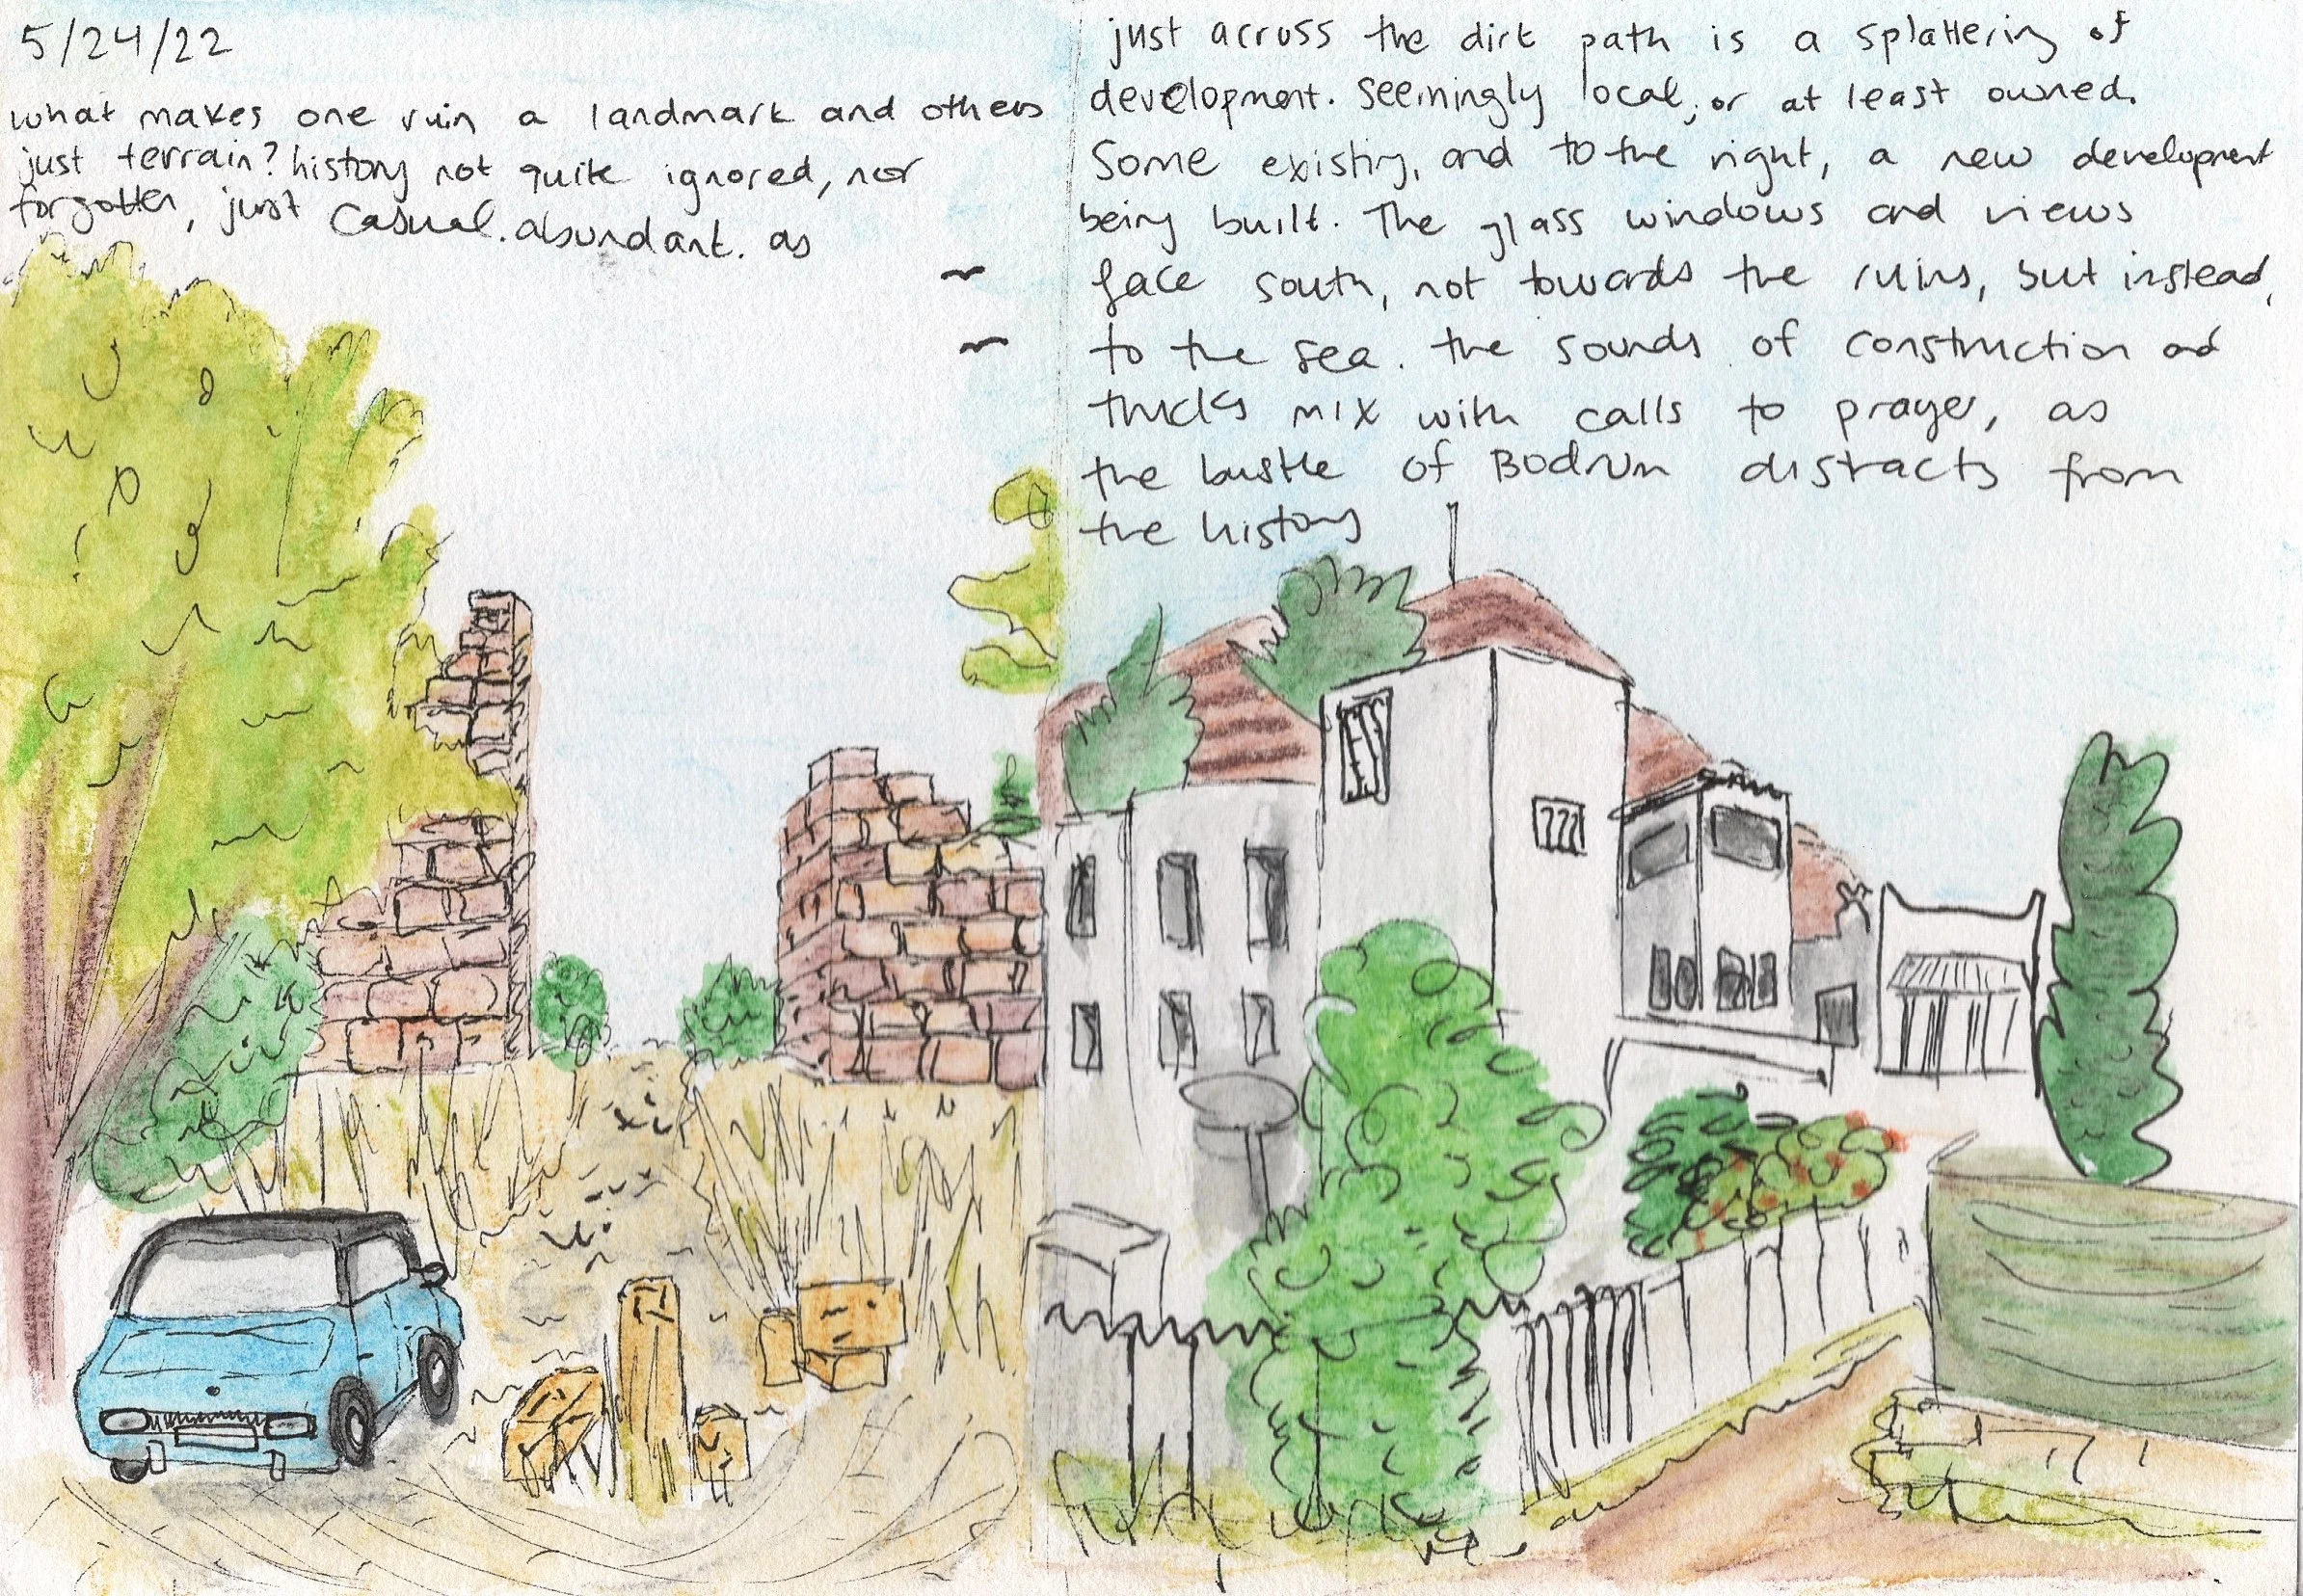 5/24/22
what makes one ruin a landmark and others
just terrain? history not quite ignored, nor
forgotten, just casual. abundant. as
just across the dirt path is a splattering of
development. Seemingly local, or at least owned.
Some existing, and to the right, a new development
being built. The glass windows and views
face south, not towards the ruins, but instead,
to the sea. the sounds of construction and
trucks mix with calls to prayer, as
the bustle of Bodrum distracts from
the history